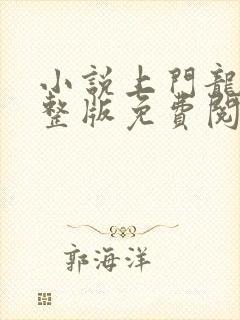 小說上門龍
整版免費閱
郭海洋